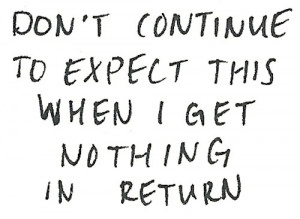 DON'T CONTINUE
TO EXPECT THIS
WHEN I GET
NOTHING
IN RETURN